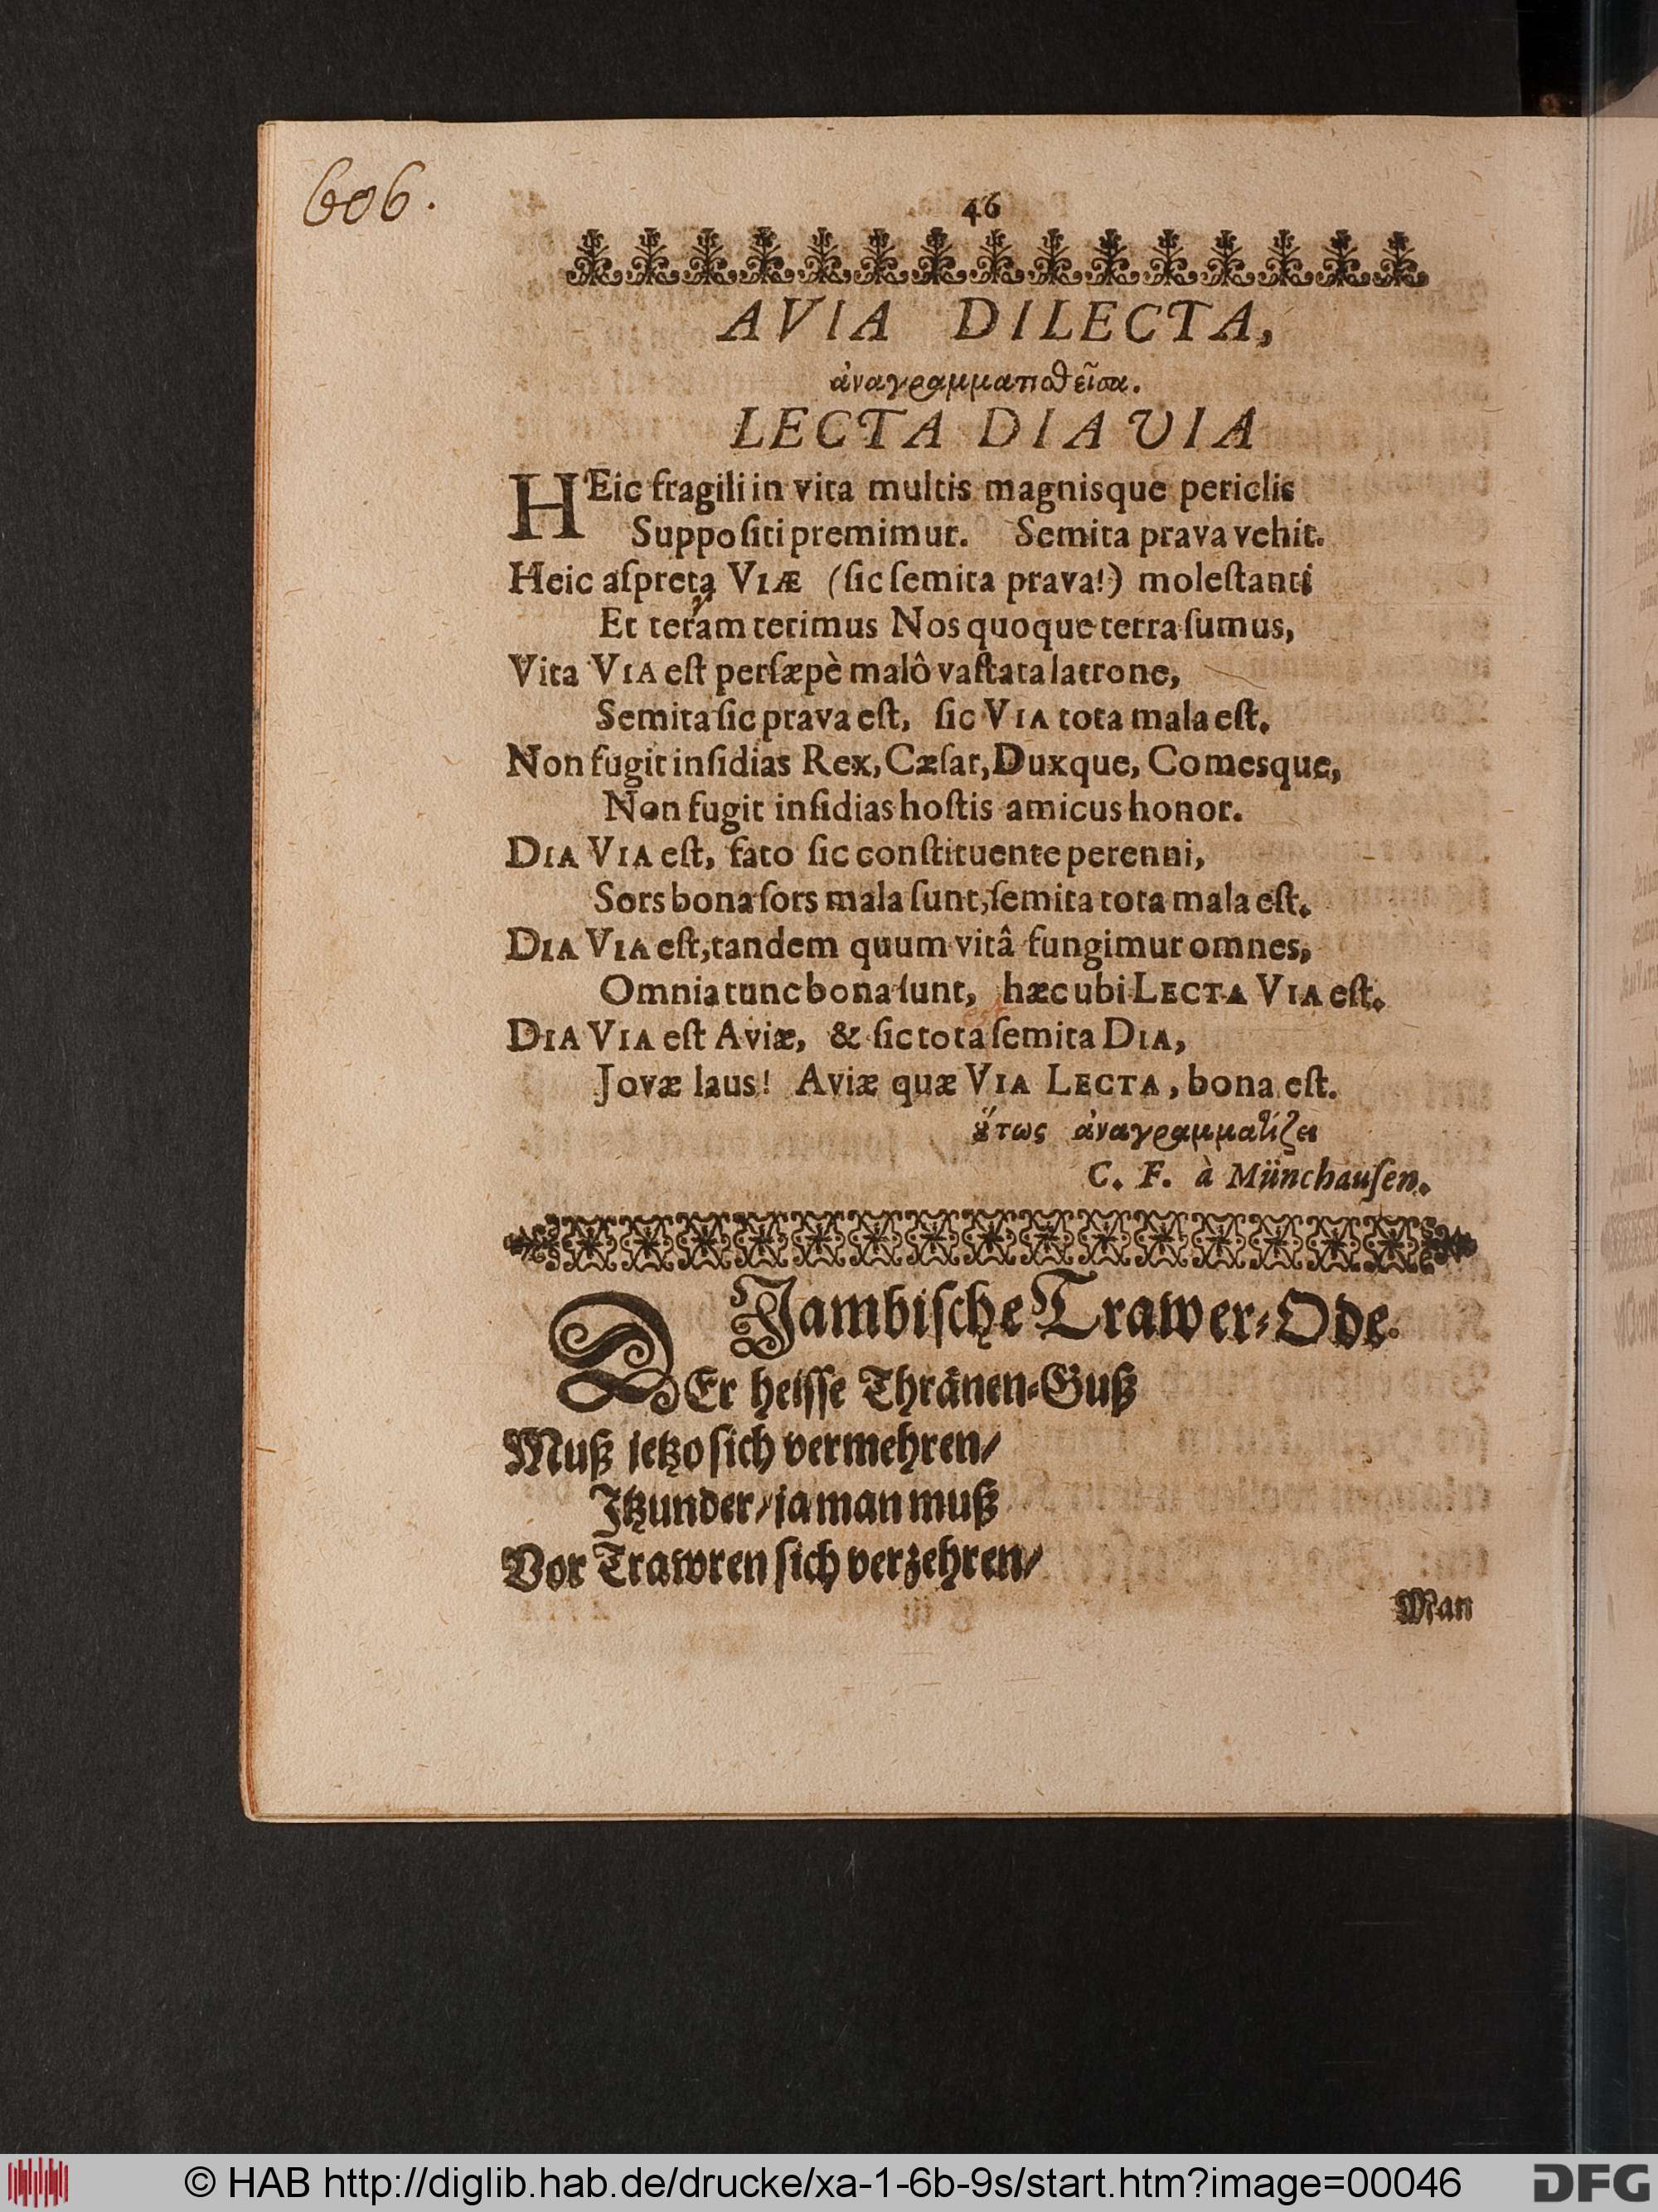 606.
46
AVIA DILECTA,
ἀναγραμματισθεῖσα.
LECTA DIA VIA
HEic fragili in vita multis magnisque periclis
Suppoſiti premimur. Semita prava vehit.
Heic aſpreta VIÆ (ſic ſemita prava!) moleſtanti
Et terram terimus Nos quoque terra ſumus,
Vita VIA eſt perſæpè malô vaſtata latrone,
Semita ſic prava eſt, ſic VIA tota mala eſt.
Non fugit inſidias Rex, Cæſar, Duxque, Comesque,
Non fugit inſidias hoſtis amicus honor.
DIA VIA eſt, fato ſic conſtituente perenni,
Sors bona ſors mala ſunt, ſemita tota mala eſt.
DIA VIA eſt, tandem quum vitâ fungimur omnes,
Omnia tunc bona ſunt, hæc ubi LECTA VIA eſt.
DIA VIA eſt Aviæ, & ſic tota ſemita DIA,
Jovæ laus! Aviæ quæ VIA LECTA, bona eſt.
ȣ̔́τως ἀναγραμματίζει
C. F. à Münchauſen.
Jambiſche Trawer-Ode.
DEr heiſſe Thränen-Guß
Muß jetzo ſich vermehren/
Jtzunder/ ja man muß
Vor Trawren ſich verzehren/
Man
© HAB http://diglib.hab.de/drucke/xa-1-6b-9s/start.htm?image=00046
DFG